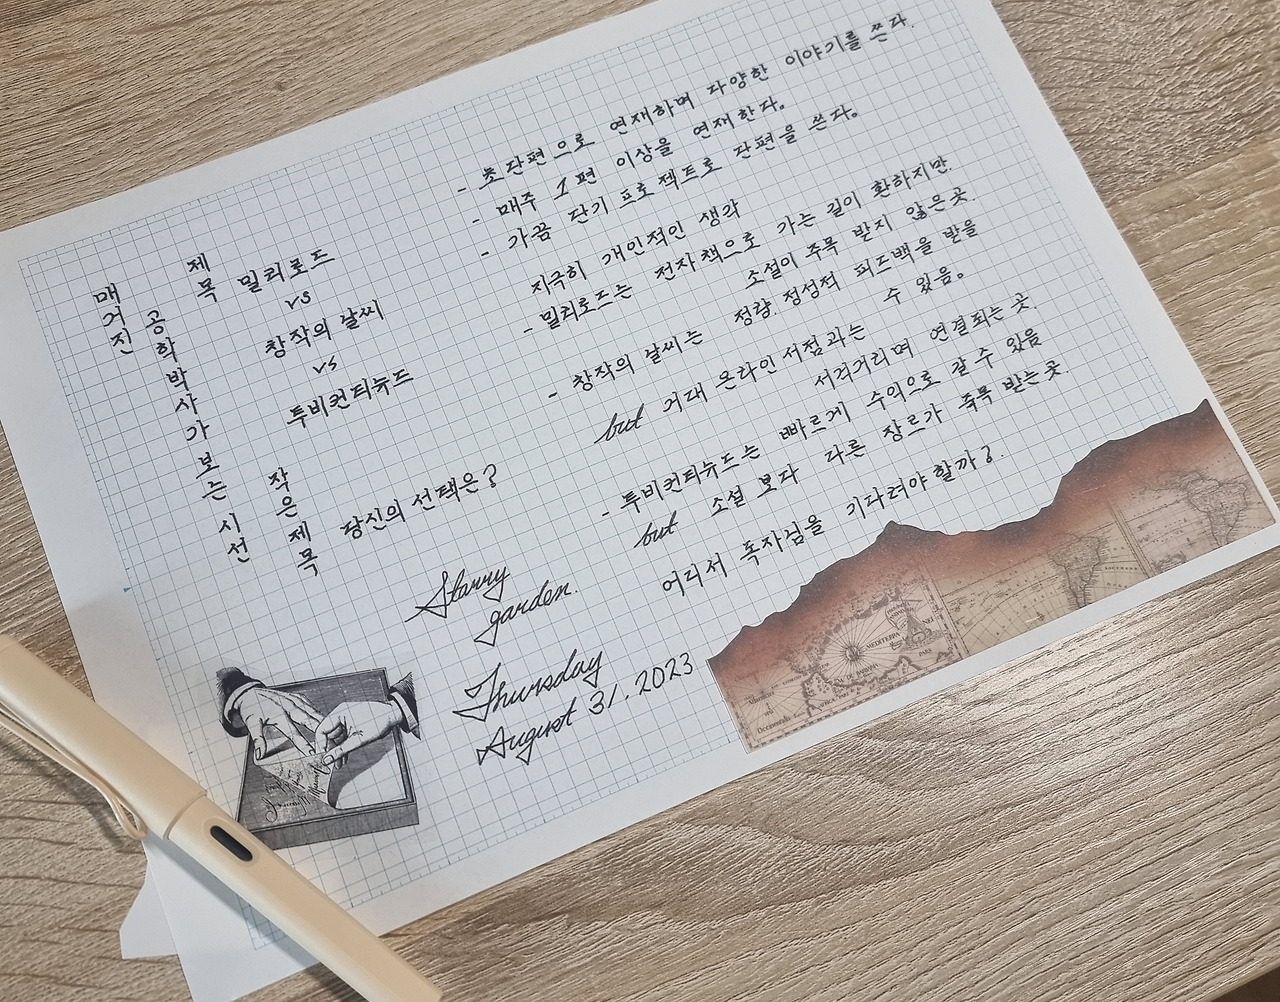 매거진
공학박사가 보는 시선
제목
밀리로드
vs
창작의 날씨
vs
투비컨티뉴드
작은제목
당신의 선택은?
Starry
garden.
Thursday
August 31. 2023
- 초단편으로 연재하며 다양한 이야기를 쓴다.
- 매주 1편 이상을 연재한다.
- 가끔 단기 프로젝트로 단편을 쓴다.
지극히 개인적인 생각
- 밀리로드는 전자책으로 가는 길이 환하지만.
소설이 주목 받지 않은 곳.
- 창작의 날씨는 정량. 정성적 피드백을 받을
수 있음.
but 거대 온라인 서점과는
서걱거리며 연결되는 곳.
- 투비컨티뉴드는 빠르게 수익으로 갈 수 있음
but 소설 보다 다른 장르가 죽목 받는 곳.
어디서 독자님을 기다려야 할까?
MEDITERRA